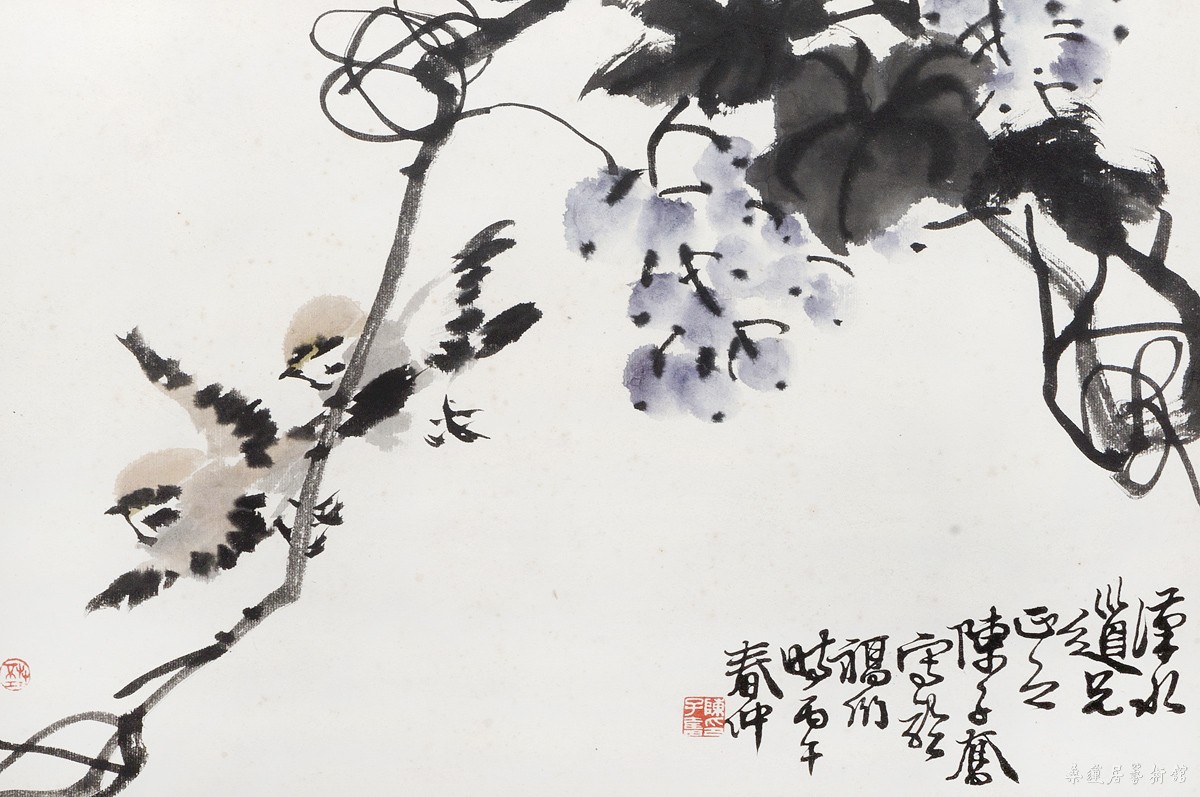 漢水
道兄
正之
陳子奮
寫於
福州
時丙午
春仲
陳印
子奮
桑蓮居藝術館